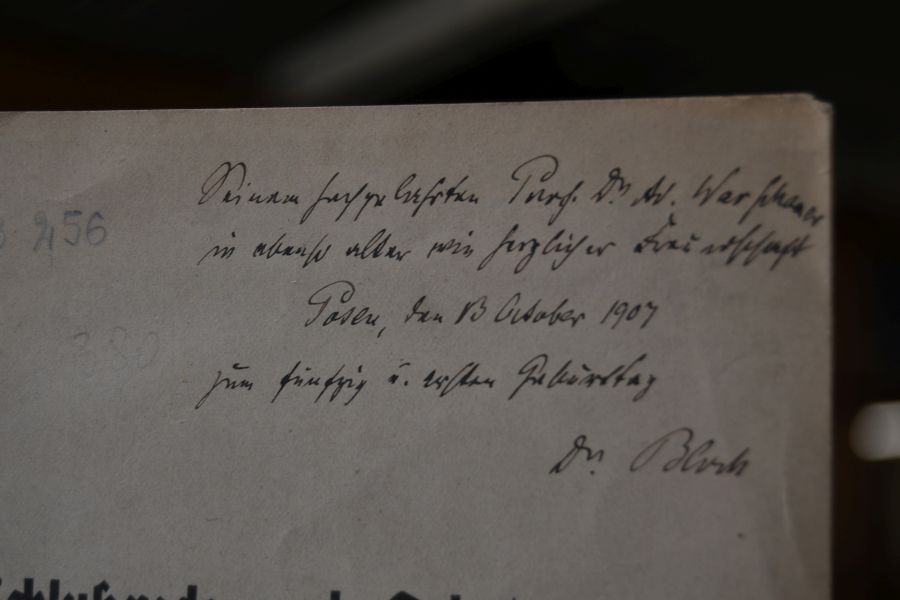 Seinem hochgelahrten Prof. Dr. Ad. Warschauer
in ebenso alter wie herzlicher Freundschaft
Posen, den 13 October 1907
zum fünfzig u. ersten Geburtstag
Dr. Bloch
456
330